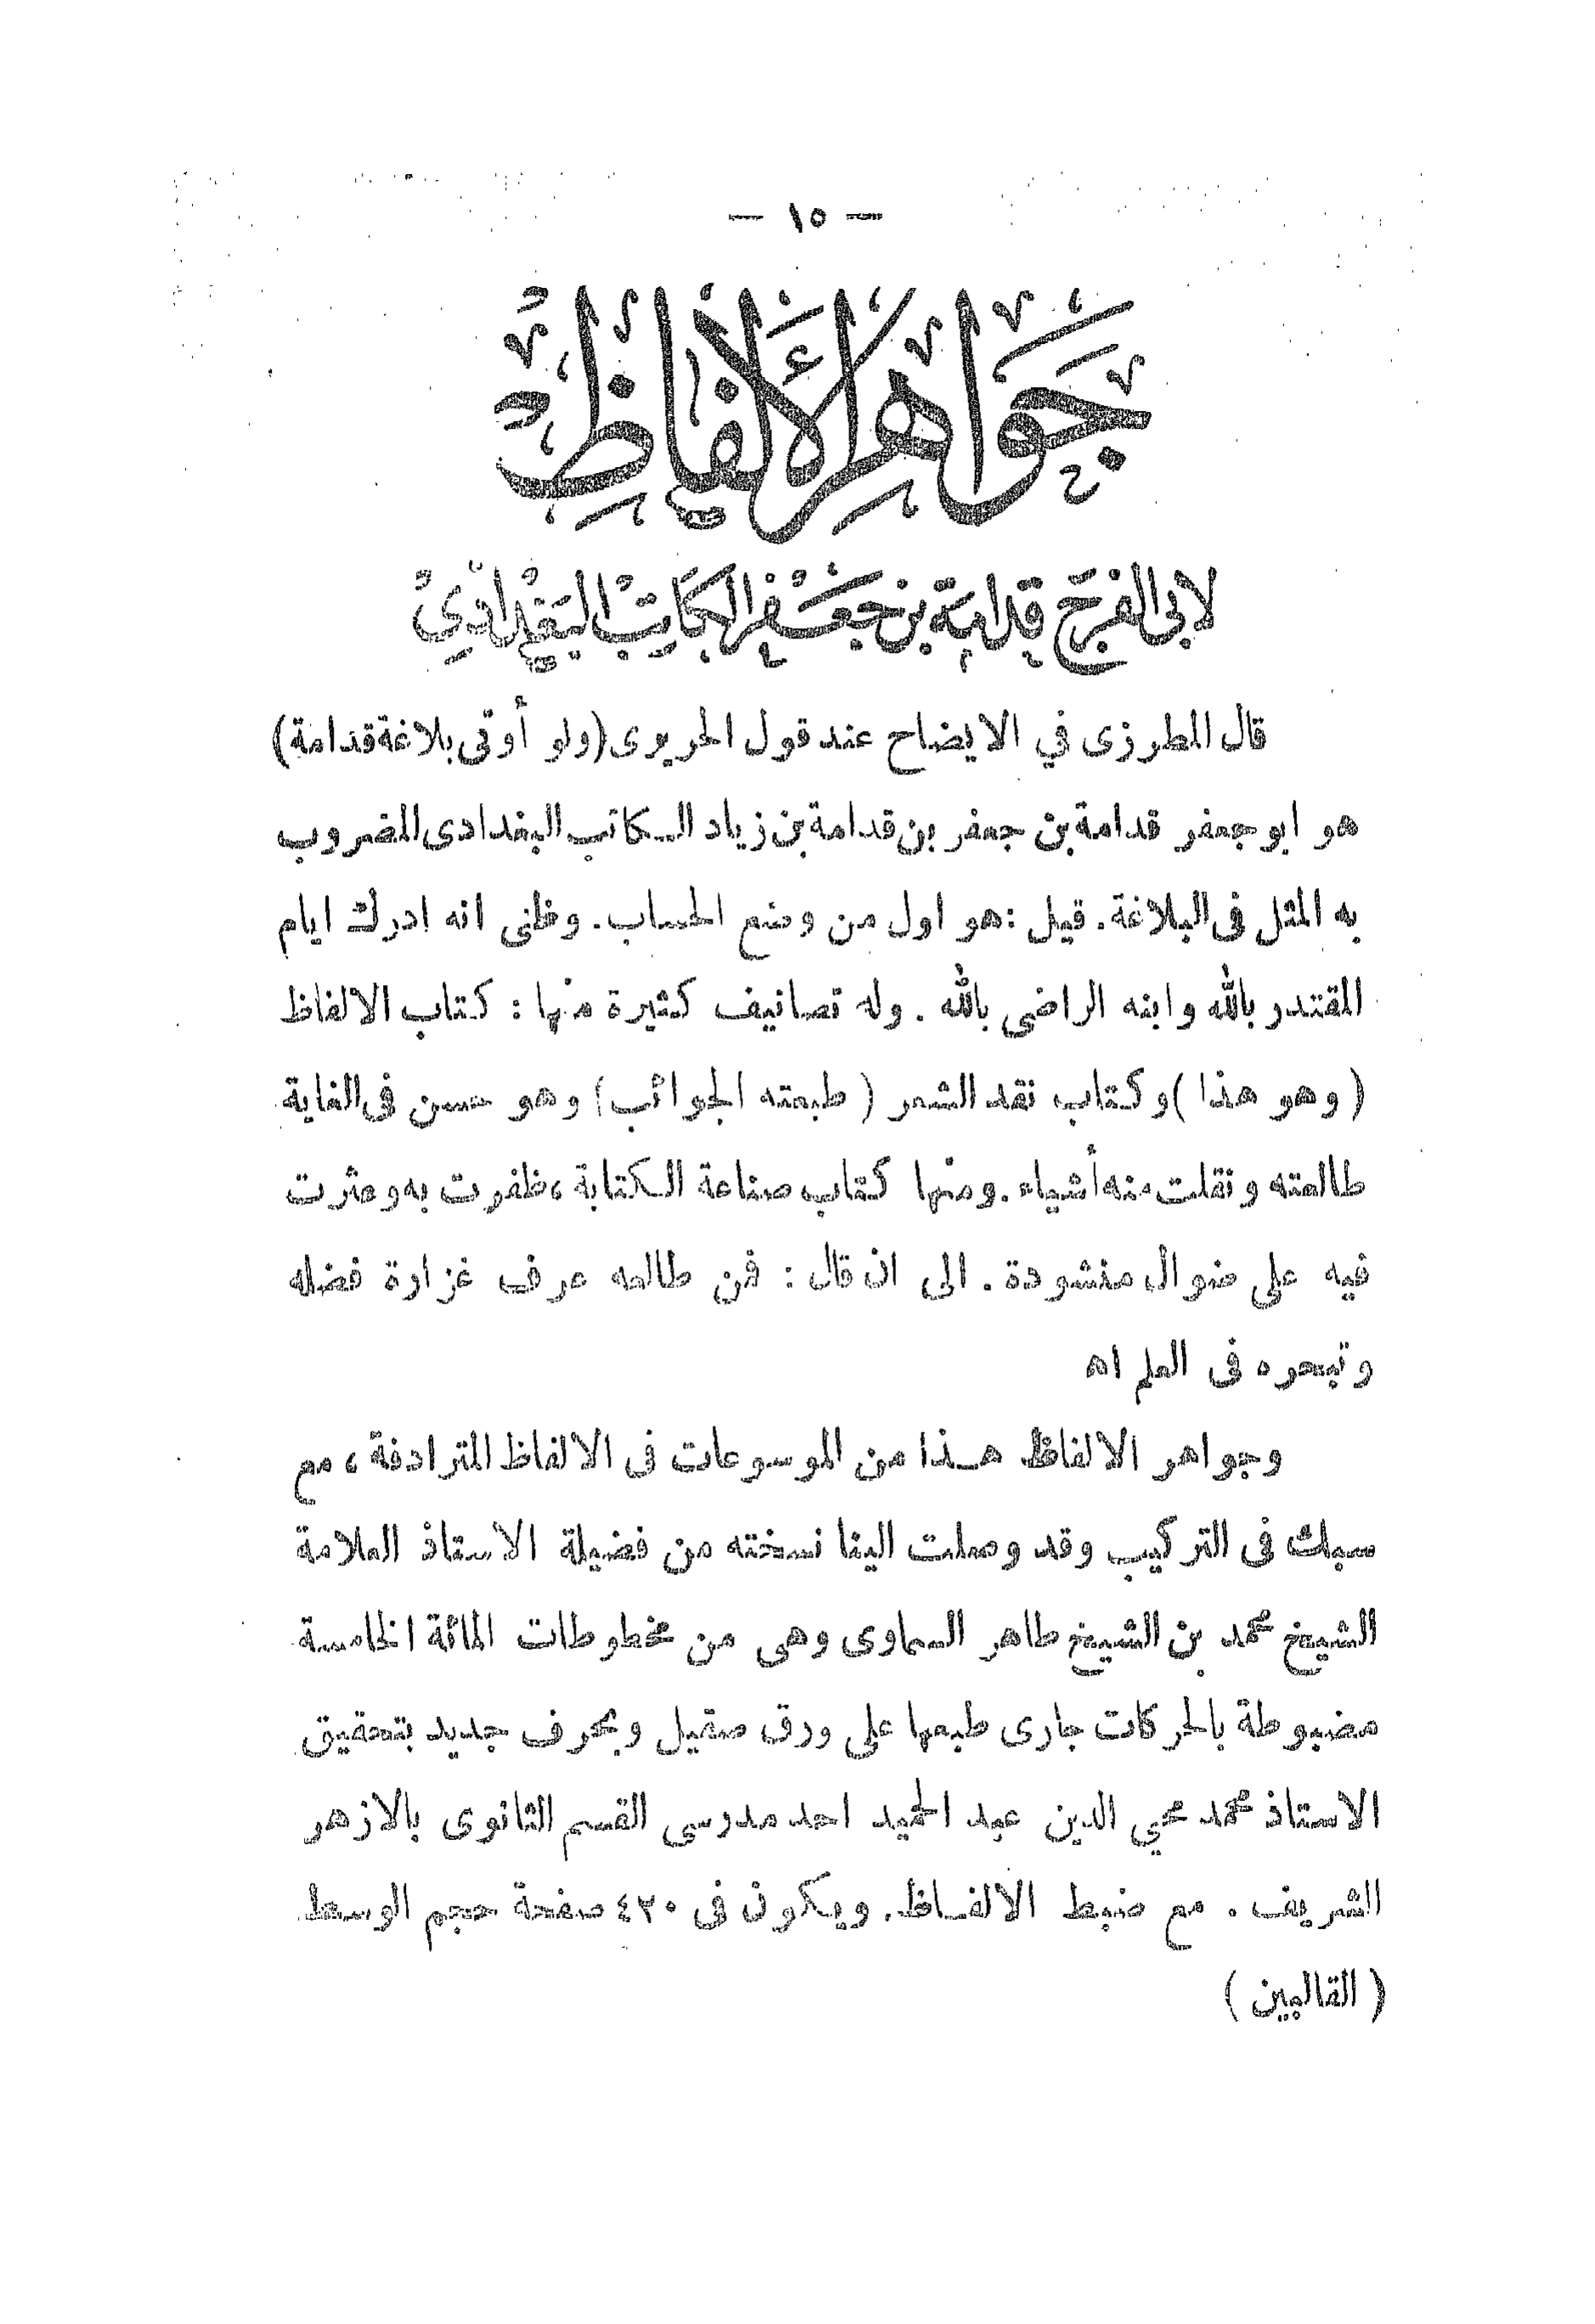 — ١٥ —
جَوَاهِرُ الْأَلْفَاظِ
لابى الفرج قدامة بن جعفر الكاتب البغدادي
قال المطرزى في الايضاح عند قول الحريرى (ولو أوتى بلاغة قدامة)
هو ابو جعفر قدامة بن جعفر بن قدامة بن زياد الـكاتب البغدادى المضروب
به المثل فى البلاغة. قيل : هو اول من وضع الحساب. وظنى انه ادرك ايام
المقتدر بالله وابنه الراضى بالله . وله تصانيف كثيرة منها : كتاب الالفاظ
( وهو هذا ) وكتاب نقد الشعر ( طبعته الجوائب) وهو حسن فى الغاية
طالعته ونقلت منه أشياء. ومنها كتاب صناعة الـكتابة ، ظفرت به وعثرت
فيه على ضوال منشودة . الى ان قال : فمن طالعه عرف غزارة فضله
وتبحره فى العلم اه
وجواهر الالفاظ هـذا من الموسوعات فى الالفاظ المترادفة ، مع
سبك فى التركيب وقد وصلت الينا نسخته من فضيلة الاستاذ العلامة
الشيخ محمد بن الشيخ طاهر السماوى وهى من مخطوطات المائة الخامسة
مضبوطة بالحركات جارى طبعها على ورق صقيل وبحرف جديد بتحقيق
الاستاذ محمد محي الدين عبد الحميد احد مدرسى القسم الثانوى بالازهر
الشريف . مع ضبط الالفـاظ. ويـكون فى ٤٢٠ صفحة حجم الوسط
( القالبين )